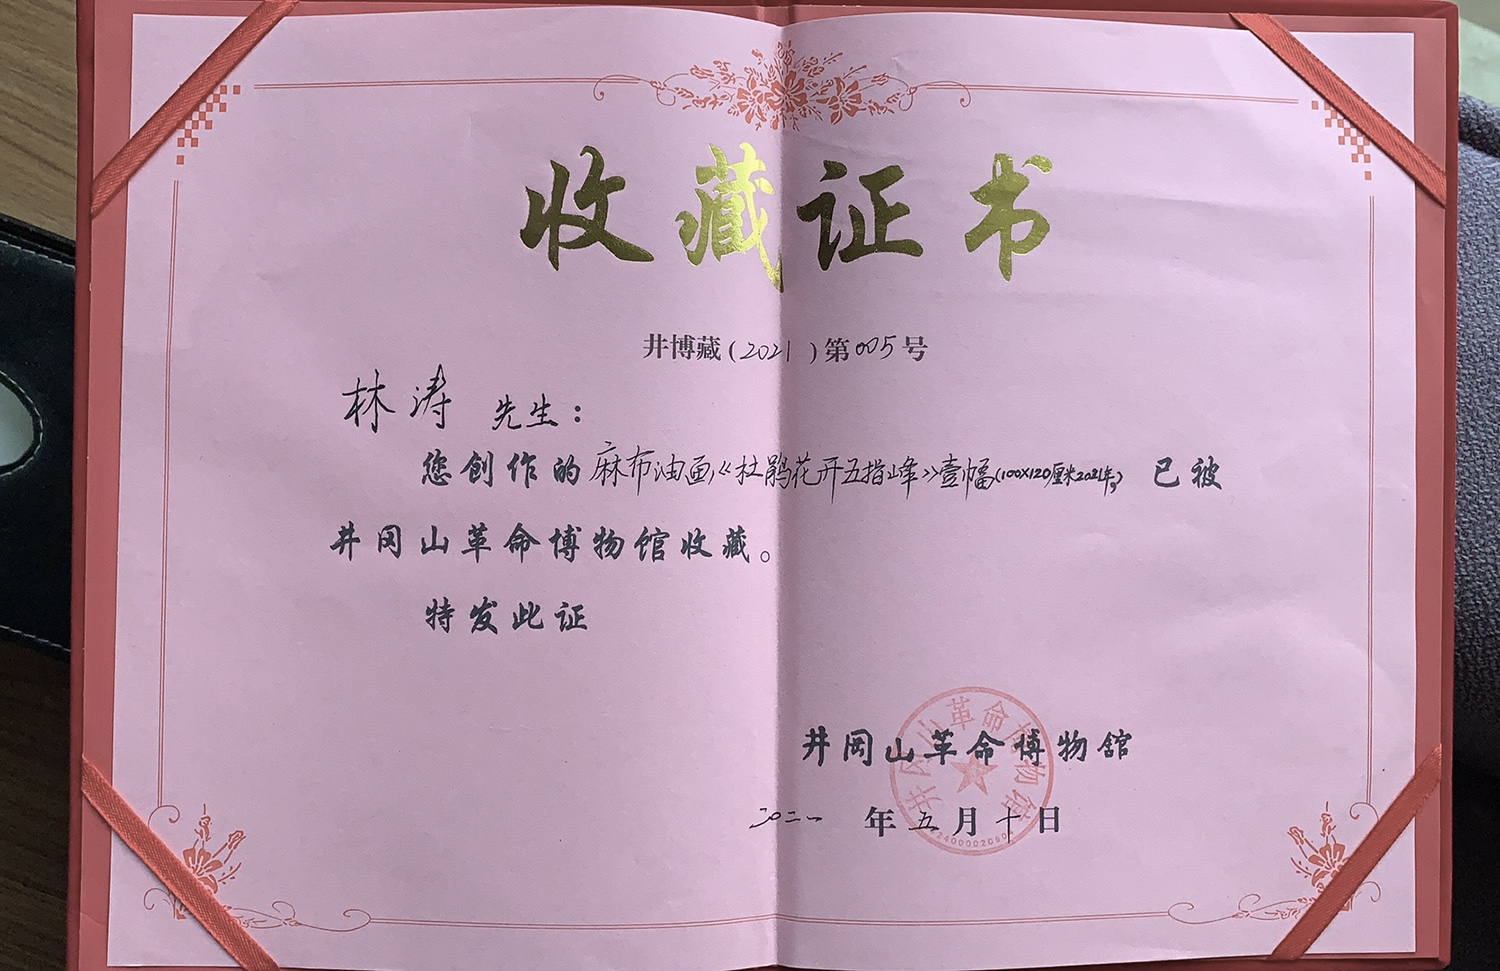 收藏证书
井博藏(2021)第005号
林涛 先生：
您创作的麻布油画《杜鹃花开五指峰》壹幅(100×120厘米2021年)已被
井冈山革命博物馆收藏。
特发此证
井冈山革命博物馆
二〇二一年五月十日
井冈山革命博物馆